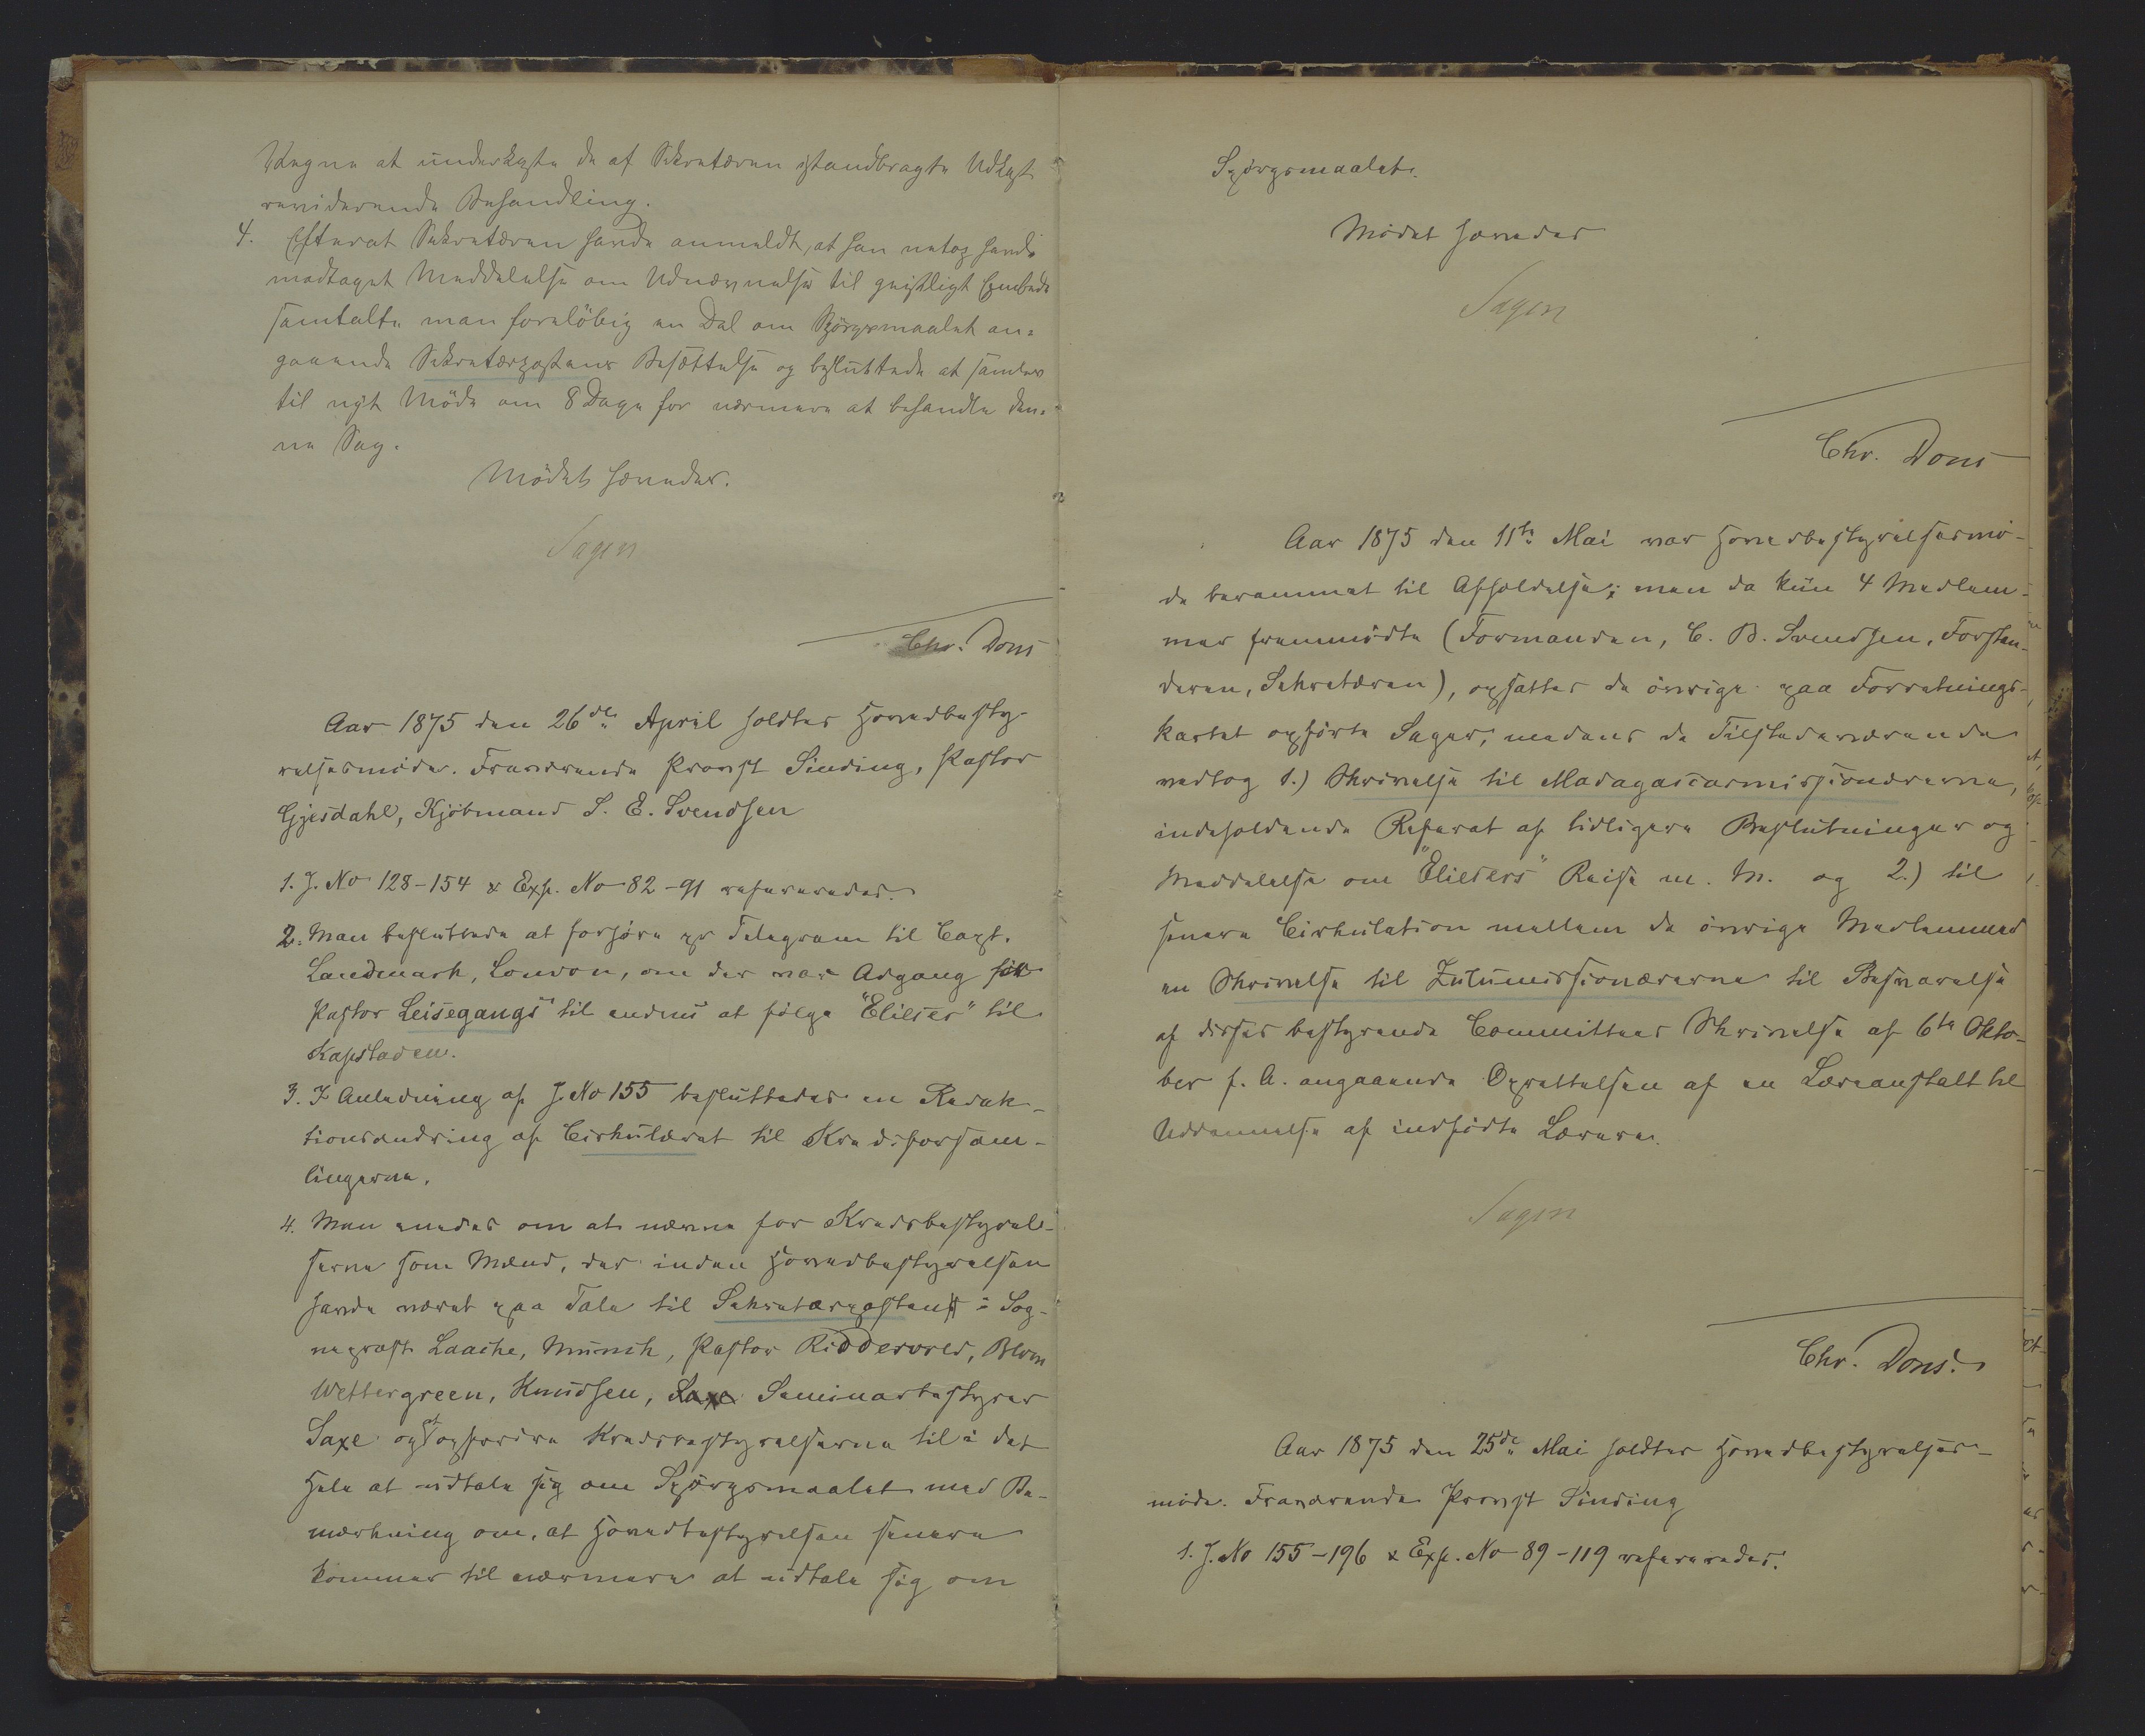 Vegne at underkaste de af Sekretæren istandbragte Udkast
reviderende Behandling.
4. Efterat Sekretæren havde anmeldt, at han netop havde
modtaget Meddelelse om Udnævnelse til geistligt Embede
samtalte man foreløbig en Del om Spörgsmaalet an=
gaaende Sekretærpostens Besættelse og besluttede at samles
til nyt Möde om 8 Dage for nærmere at behandle den=
ne Sag.
Mödet hævedes.
Sagen
Chr. Dons
Aar 1875 den 26de April holdtes Hovedbesty-
relsesmöde. Fraværende Provst Sinding, Pastor
Gjesdahl, Kjöbmand S. E. Svendsen
1. J. No 128-154 & Exp. No 82-91 refereredes.
2. Man besluttede at forspørge pr Telegram til Capt.
Landmark, London, om der var Adgang for
Pastor Leisegangs til endnu at følge "Elieser" til
Kapstaden.
3. I Anledning af J. No 155 besluttedes en Redak-
tionsendring af Cirkulæret til Kredsforsam-
lingerne.
4. Man enedes om at nævne for Kredsbestyrel-
serne som Mænd, der inden Hovedbestyrelsen
havde været paa Tale til Sekretærposten: Sog-
neprest Laache, Munch, Pastor Riddervold, Blom
Wettergreen, Knudsen, Saxe Seminarbestyrer
Saxe og at opfordre Kredsbestyrelserne til i det
Hele at udtale sig om Spörgsmaalet med Be-
mærkning om, at Hovedbestyrelsen senere
kommer til nærmere at udtale sig om
Spörgsmaalet.
Mödet hævedes
Sagen
Chr. Dons
Aar 1875 den 11te Mai var Hovedbestyrelsesmö-
de berammet til Afholdelse; men da kun 4 Medlem-
mer fremmödte (Formanden, C. B. Svendsen, Forstan-
deren, Sekretæren), opsattes de övrige paa Forretnings-
kartet opförte Sager, medens de Tilstedeværende
vedtog 1.) Skrivelse til Madagascarmissionærerne,
indeholdende Referat af tidligere Beslutninger og
Meddelelse om "Eliesers" Reise m. M. og 2.) til
senere Cirkulation mellem de övrige Medlemmer
en Skrivelse til Zulumissionærerne til Besvarelse
af disses bestyrende Committees Skrivelse af 6te Okto-
ber f. A. angaaende Oprettelsen af en Læreanstalt til
Uddannelse af indfödte Lærere.
Sagen
Chr. Dons.
Aar 1875 den 25de Mai holdtes Hovedbestyrelses-
möde. Fraværende Provst Sinding
1. J. No 155-196 & Exp. No 89-119 refereredes.